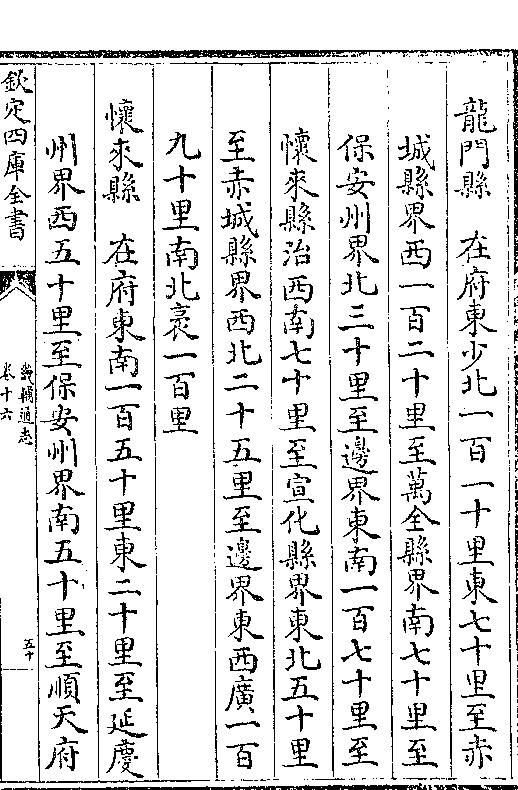 龍門縣　在府東少北一百一十里東七十里至赤
城縣界西一百二十里至萬全縣界南七十里至
保安州界北三十里至邊界東南一百七十里至
懷來縣治西南七十里至宣化縣界東北五十里
至赤城縣界西北二十五里至邊界東西廣一百
九十里南北袤一百里
懷來縣　在府東南一百五十里東二十里至延慶
州界西五十里至保安州界南五十里至順天府
欽定四庫全書
畿輔通志
卷十六
五十